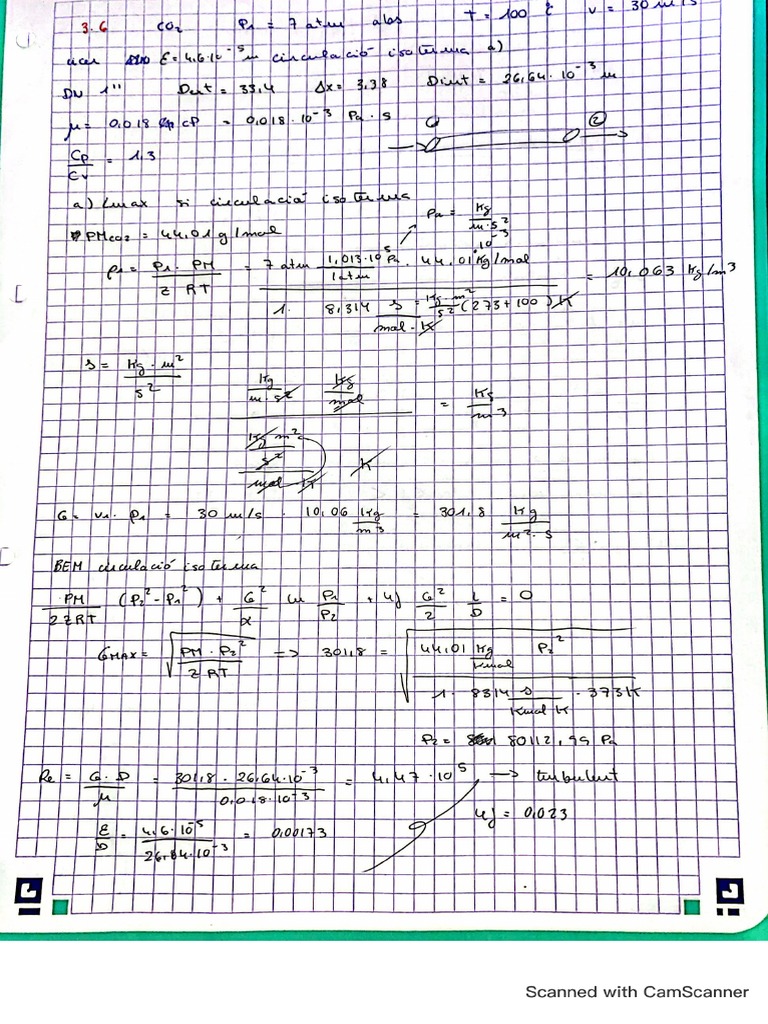 3.6 CO2 P1 = 7 atm abs T = 100 ºC v = 30 m/s
acer ε = 4,6·10^-5 m circulació isoterma a)
DN 1" Dext = 33,4 Δx = 3,38 Dint = 26,64·10^-3 m
μ = 0,018 cP = 0,018·10^-3 Pa·s
② 
Cp/Cv = 1.3
a) Lmax si circulació isoterma
Pa = Kg/(m·s^2)
PMCO2 = 44,01 g/mol
ρ1 = P1·PM / Z RT = 7 atm 1,013·10^5 Pa/1 atm · 44,01 Kg/mol 10^-3 / 1· 8,314 J = Kg·m^2/s^2 / mol·K (273+100) K = 10,063 Kg/m^3
J = Kg·m^2 / s^2
Kg/(m·s^2) Kg/mol / (Kg m^2/s^2 / mol K) K = Kg/m^3
G = v1·ρ1 = 30 m/s · 10,06 Kg/m^3 = 301,8 Kg/(m^2·s)
BEM circulació isoterma
PM/2ZRT (P2^2 - P1^2) + G^2/α ln P1/P2 + 4f G^2/2 L/D = 0
GMAX = √(PM·P2^2 / Z RT) => 301,8 = √(44,01 Kg/Kmol P2^2 / 1· 8314 J/Kmol K · 373K)
P2 = 80112,99 Pa
Re = G·D/μ = 301,8·26,64·10^-3 / 0,018·10^-3 = 4,47·10^5 → turbulent
4f = 0,023
ε/D = 4,6·10^-5 / 26,84·10^-3 = 0,00173
Scanned with CamScanner